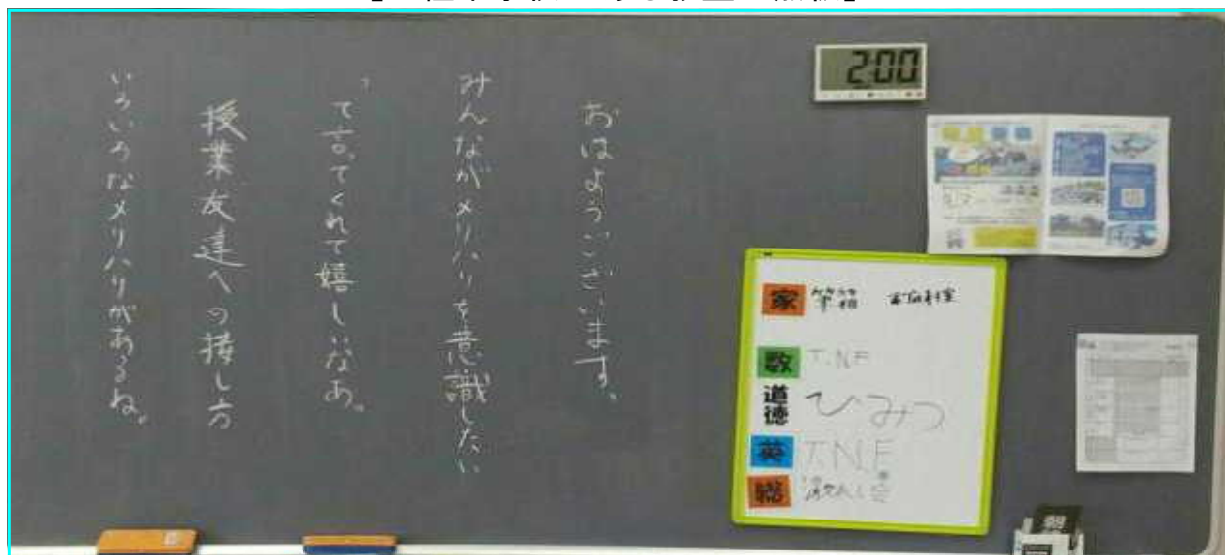 おはようございます。
みんながメリハリを意識したい
って言ってくれて嬉しいなあ。
授業友達への接し方
いろいろなメリハリがあるね。
2:00
家 筆箱
数 T.N.F
道徳 ひみつ
英 T.N.F
総 激れい会